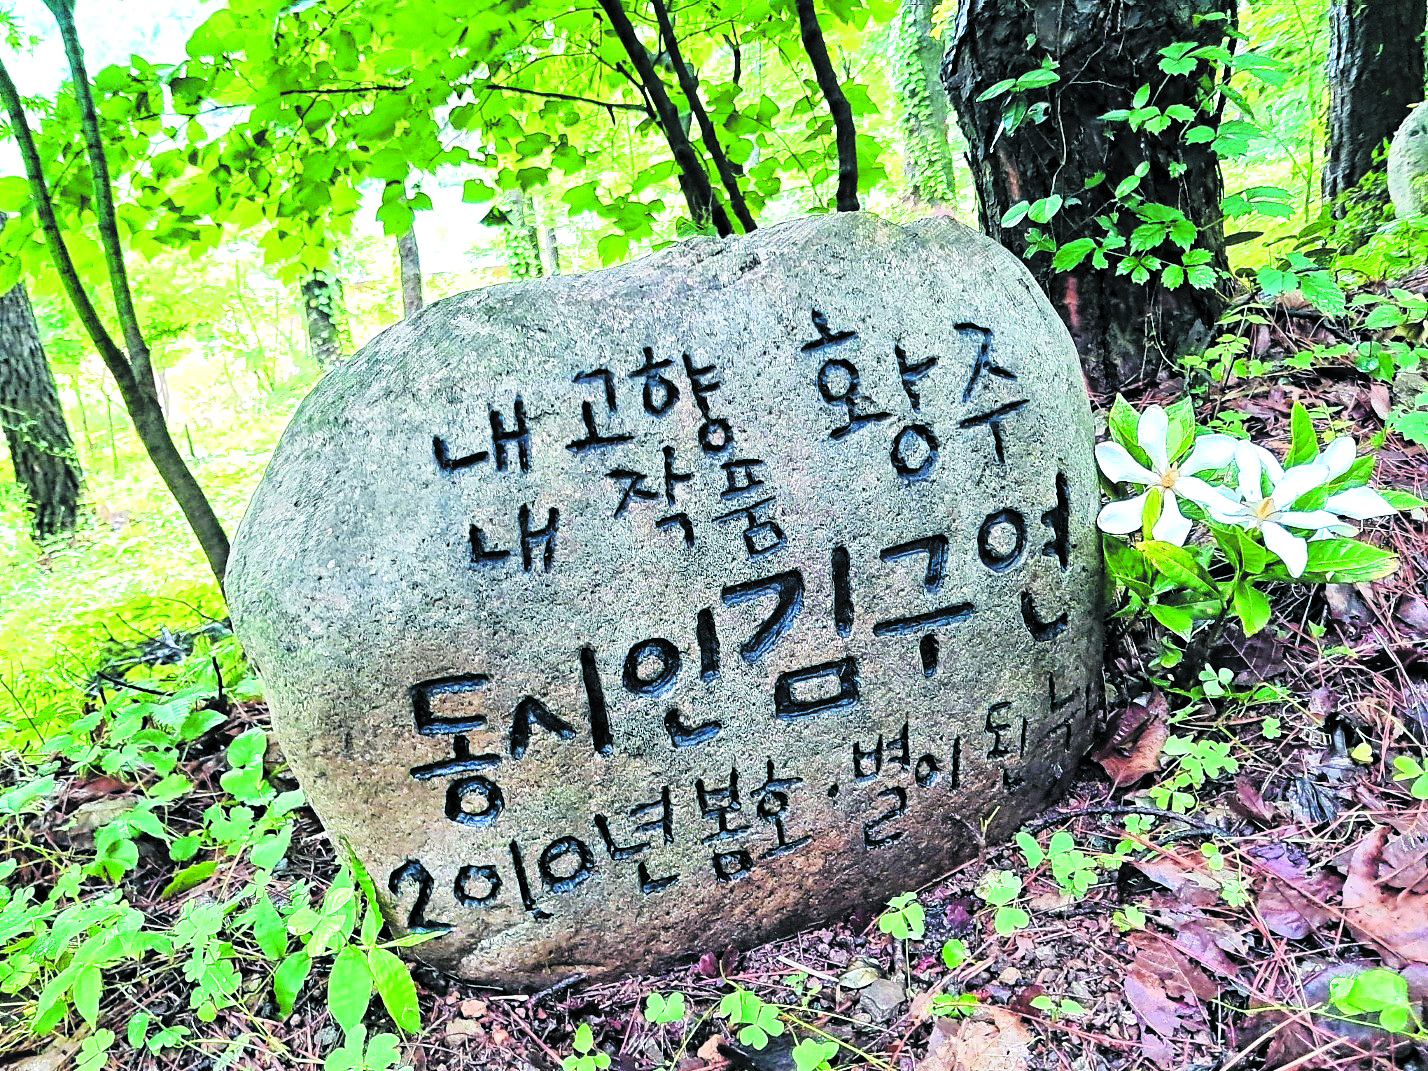 내 고향 황주
내 작품
동시인 김구연
2010년 봄호 · 별이 된 눈